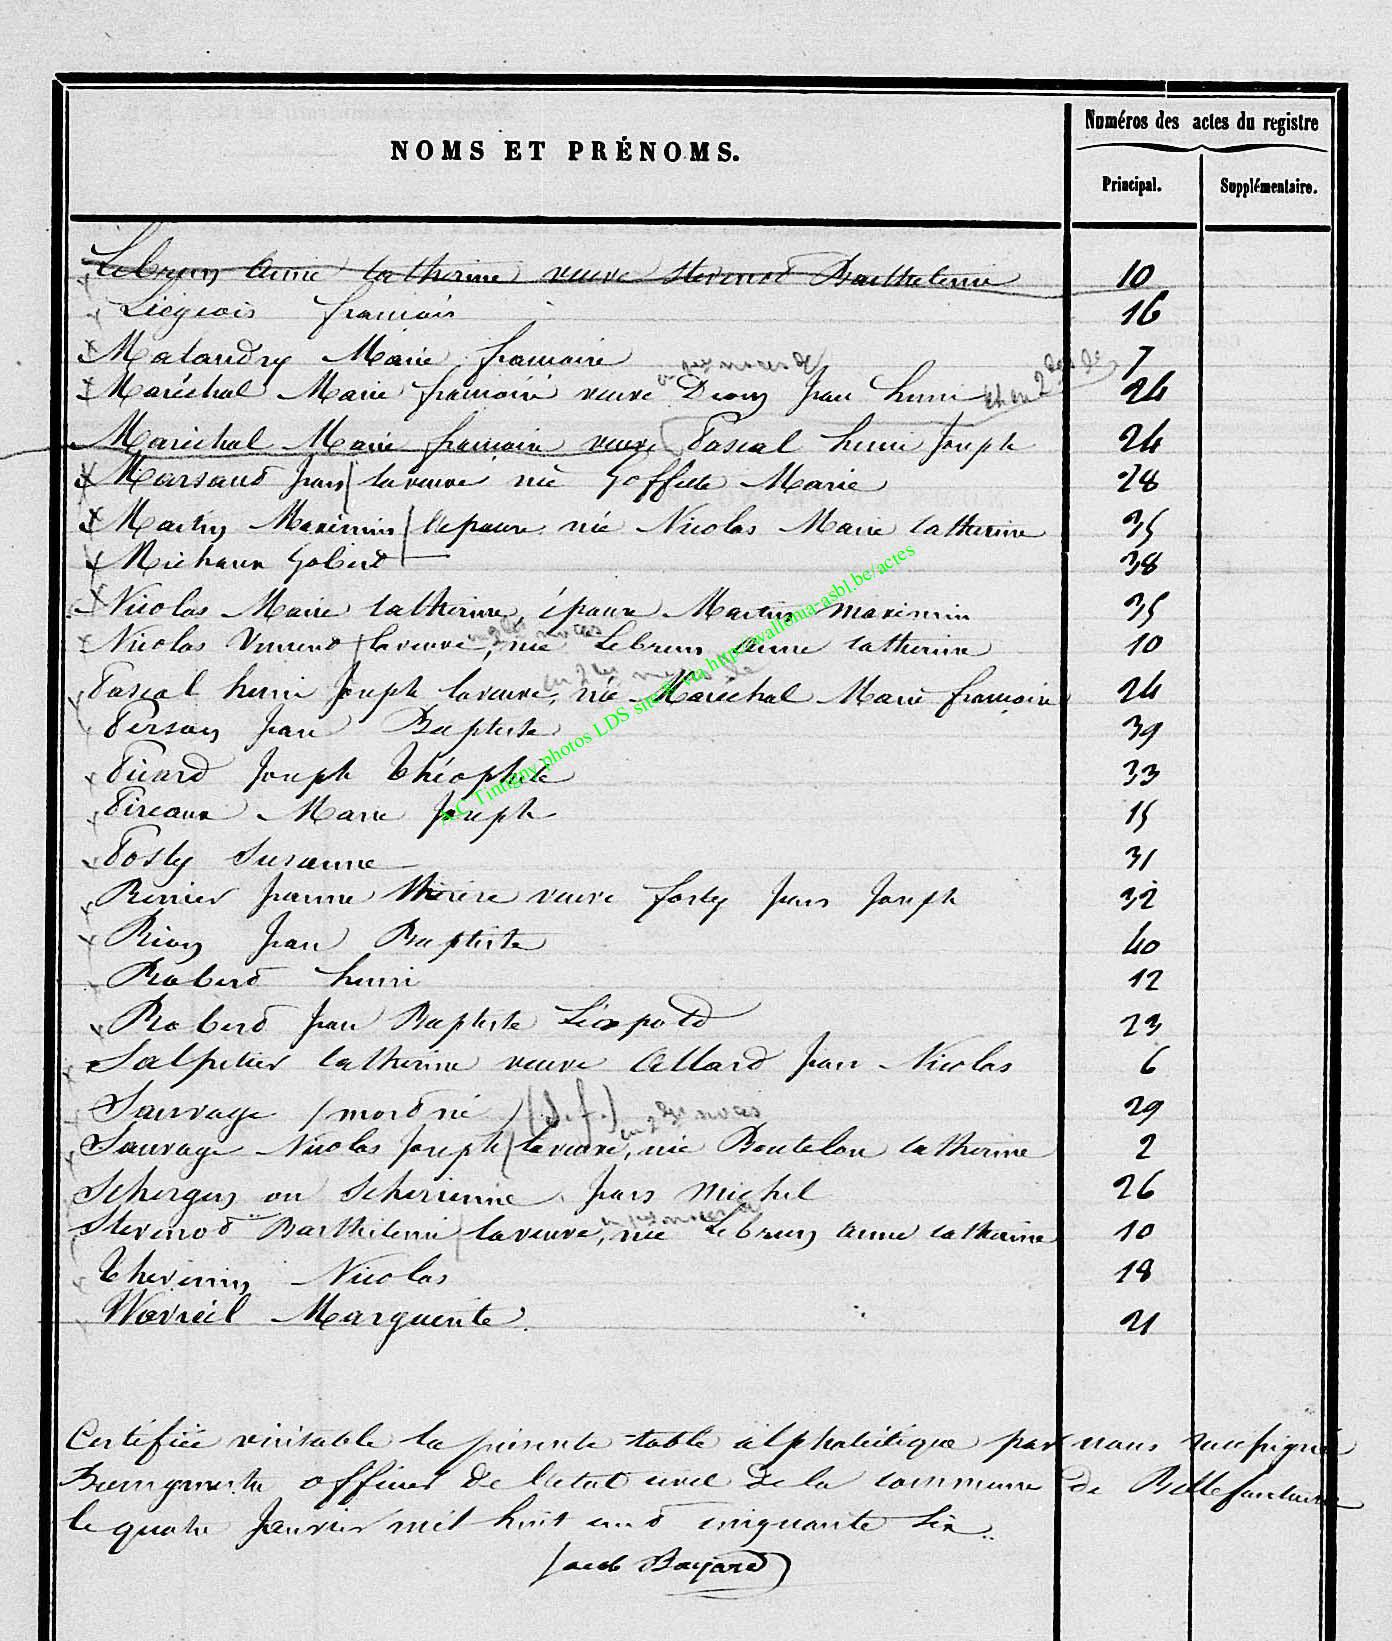 NOMS ET PRÉNOMS.
Numéros des actes du registre
Principal.
Supplémentaire.
Lebrun Anne Catherine veuve Stevenot Barthelemi 10
Liégeois françois 16
Malandry Marie françoise 7
en 1res noces de
Maréchal Marie françoise veuve Dion Jean henri et en 2des de 24
Maréchal Marie françoise veuve Pascal henri Joseph 24
Marsaud Jean la veuve née Goffette Marie 28
Martin Maximin l'épouse née Nicolas Marie Catherine 35
Michaux Gobert 38
Nicolas Marie Catherine, épouse Martin Maximin 35
en 2des noces
Nicolas Vincent la veuve, née Lebrun Anne Catherine 10
en 2des noces de
Pascal henri Joseph la veuve, née Maréchal Marie françoise 24
Person Jean Baptiste 39
Picard Joseph Théophile 33
Pireaux Marie Joseph 15
Posty Susanne 31
Renier Jeanne Thérèse veuve forty Jean Joseph 32
Rion Jean Baptiste 40
Robert henri 12
Robert Jean Baptiste Léopold 23
Salpetier Catherine veuve Allard Jean Nicolas 6
Sauvage (mort né) (s. f.) 29
en 2des noces
Sauvage Nicolas Joseph la veuve, née Boutelou Catherine 2
Schergen ou Scherienne Jean Michel 26
en 1res noces
Stevenot Barthélemi la veuve, née Lebrun Anne Catherine 10
Thevenin Nicolas 18
Wavreil Marguerite 21
Certifiée véritable la présente table alphabétique par nous soussigné
Bourgmestre officier de l'état civil de la commune de Bellefontaine
le quatre Janvier mil huit cent cinquante six.
Jacob Bayard
AC Tintigny photos LDS via http://wallonia-asbl.be/actes